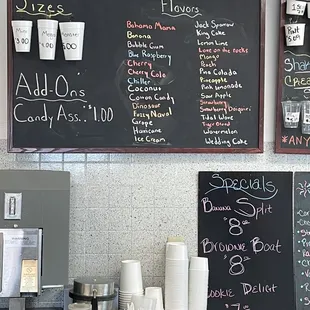 Sizes
Flavors
3.00
4.00
5.00
Add-On's
Candy Ass. $1.00
Bahama Mama
Banana
Bubble Gum
Blue Raspberry
Cherry
Cherry Cola
Chiller
Coconut
Cotton Candy
Dinosaur
Fuzzy Navel
Grape
Hurricane
Ice Cream
Jack Sparrow
King Cake
Lemon Lime
Love on the rocks
Mango
Peach
Pina Colada
Pineapple
Pink lemonade
Sour Apple
Strawberry
Strawberry Daiquiri
Tidal Wave
Tiger Blood
Watermelon
Wedding Cake
Specials
Banana Split
8
Brownie Boat
8
Cookie Delight